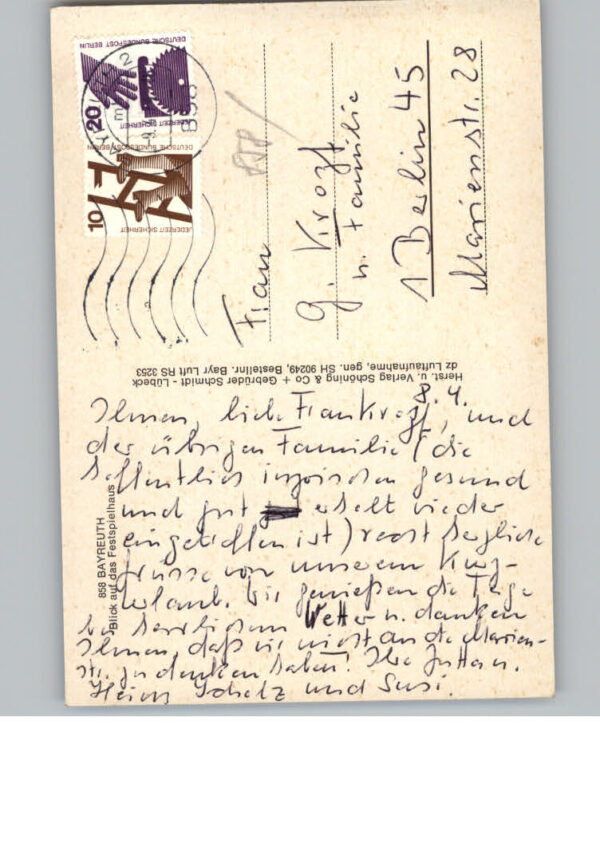 8. 4.
Ihnen, liebe Frau Krozt, und
der übrigen Familie (die
hoffentlich inzwischen gesund
und gut erholt wieder
eingetroffen ist) recht herzliche
Grüsse von unserem Kurz-
urlaub. Wir genießen die Tage
bei herrlichem Wetter u. danken
Ihnen, daß wir nicht an die Marien-
str. zu denken haben! Ihre Jutta u.
Heinz Scholz und Susi.
858 BAYREUTH
Blick auf das Festspielhaus
Herst. u. Verlag Schöning & Co + Gebrüder Schmidt - Lübeck
dz Luftaufnahme, gen. SH 90249, Bestellnr. Bayr Luft RS 3253
DEUTSCHE BUNDESPOST BERLIN
20
JEDERZEIT SICHERHEIT
DEUTSCHE BUNDESPOST BERLIN
10
JEDERZEIT SICHERHEIT
Frau
G. Krozt
u. Familie
1 Berlin 45
Marienstr. 28